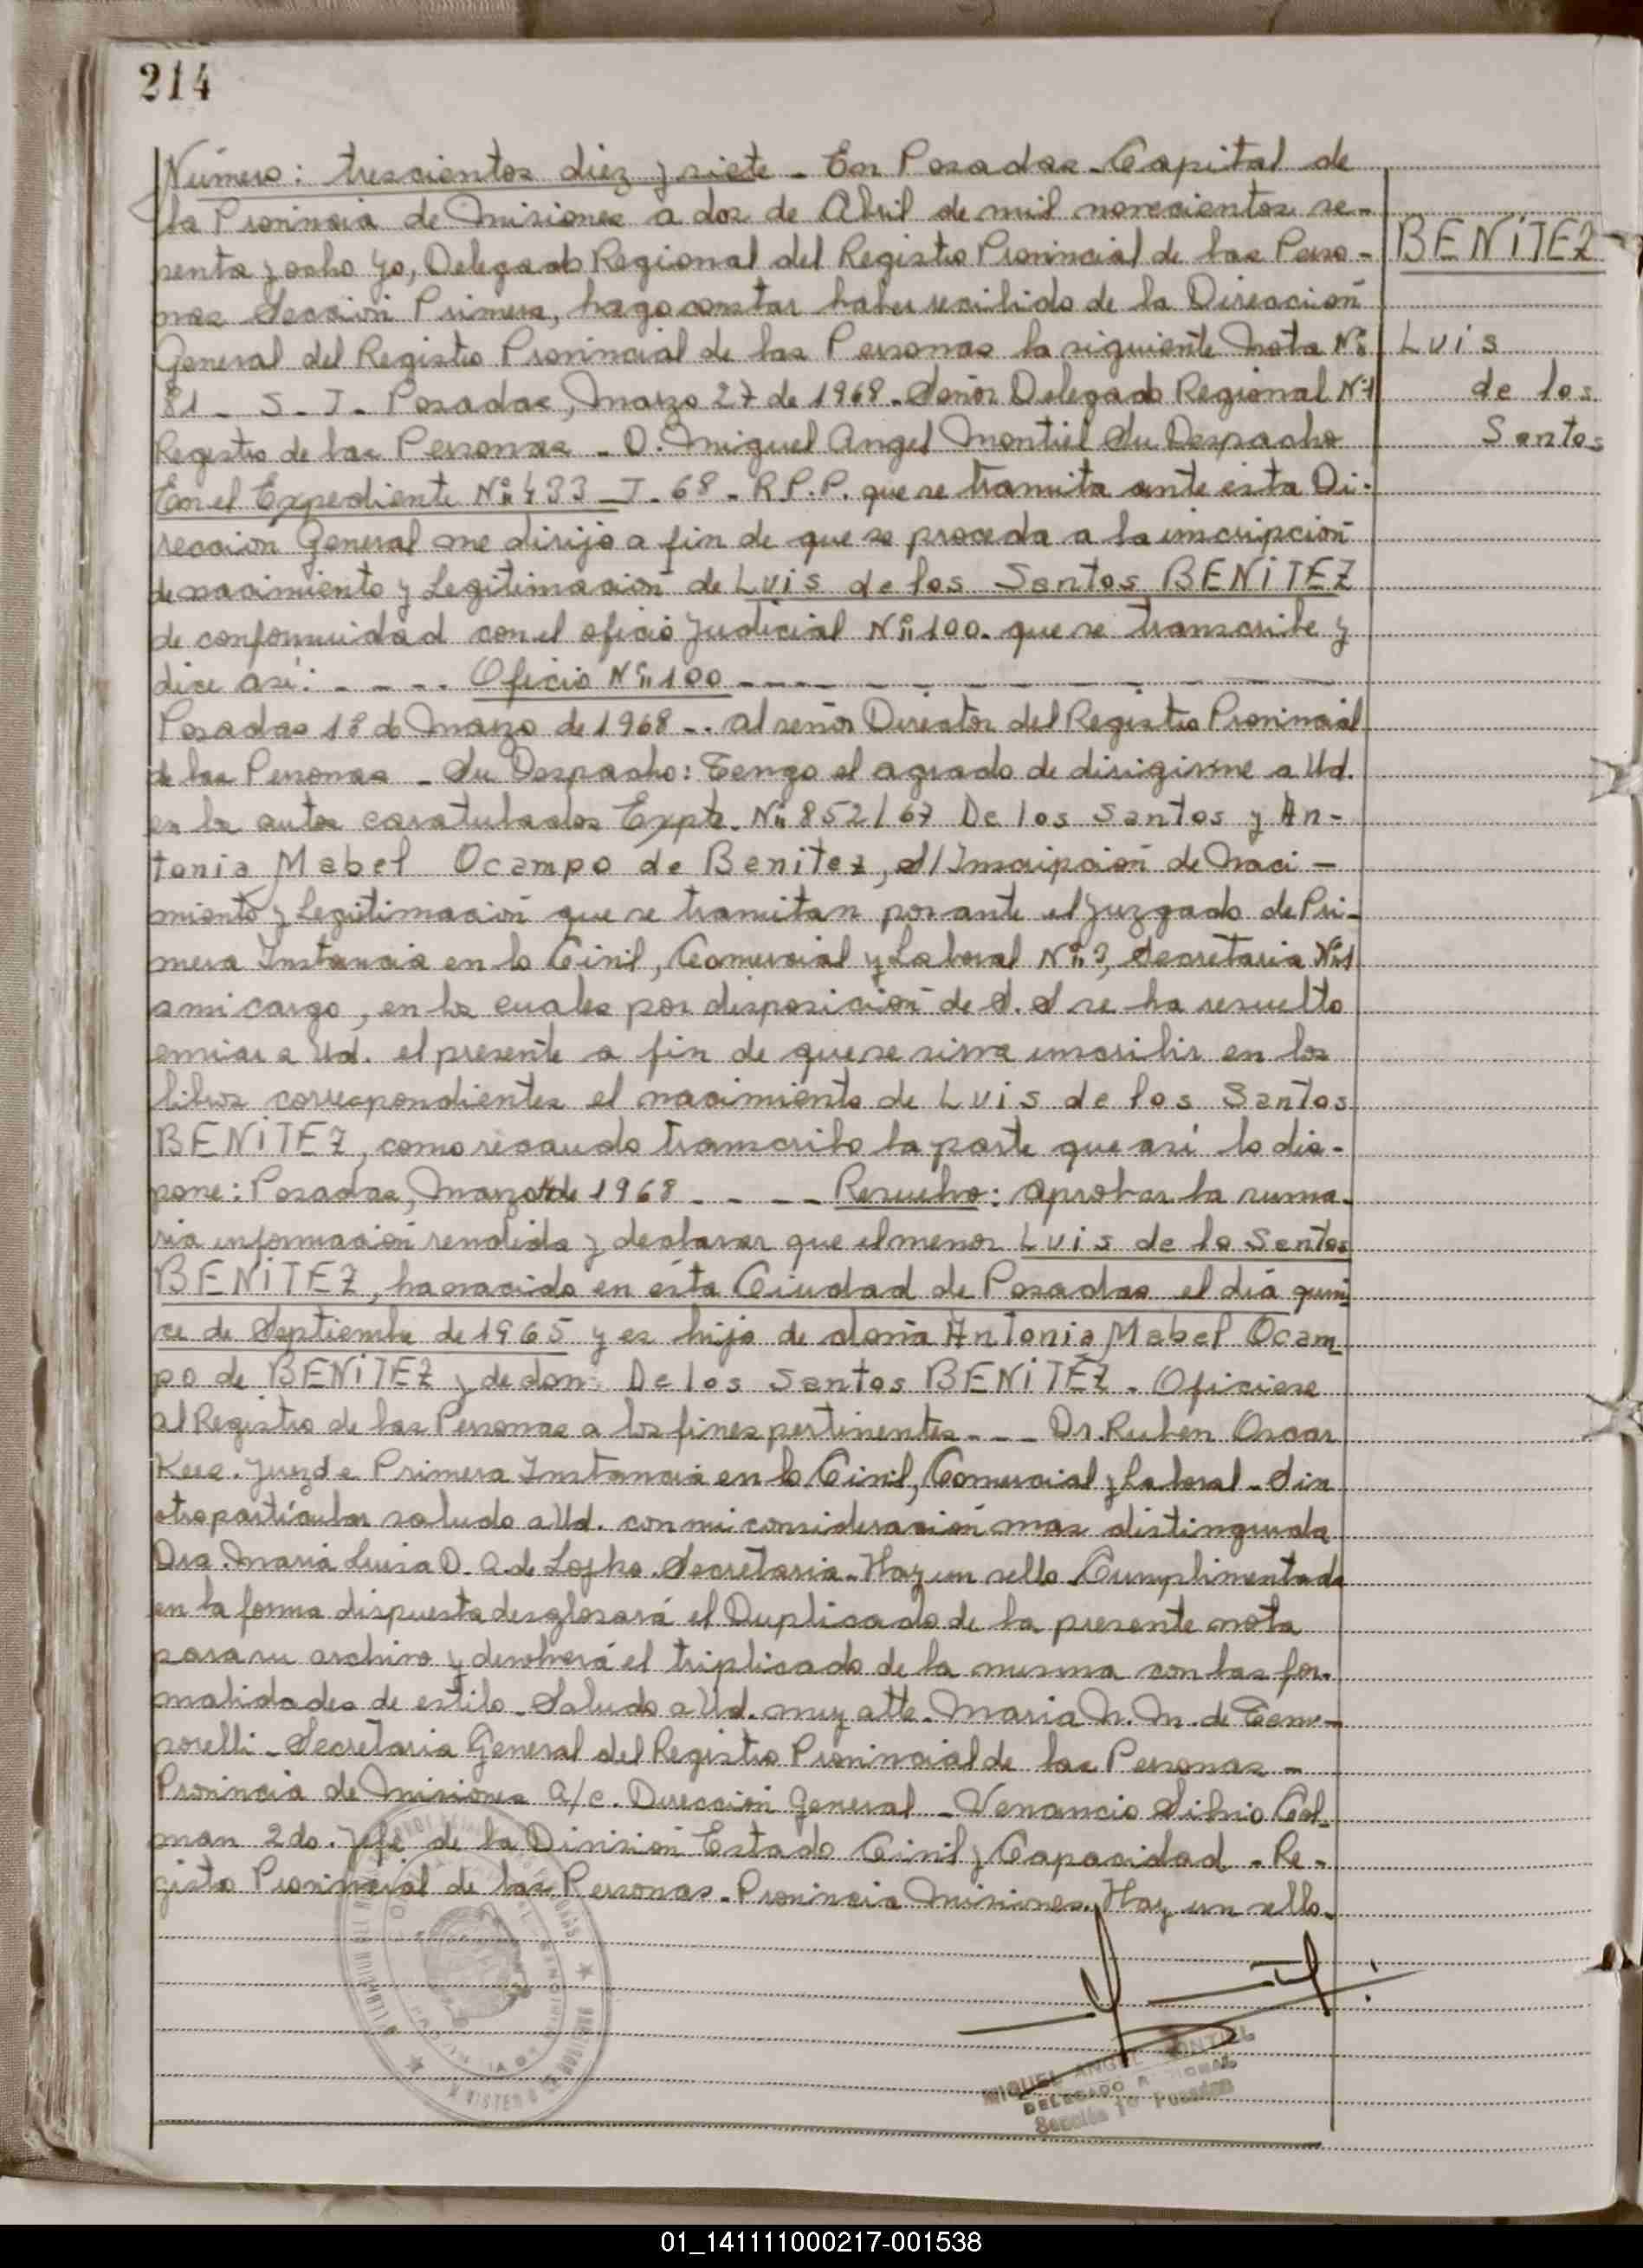 214
Número: trescientos diez y siete - En Posadas Capital de
la Provincia de Misiones a dos de Abril de mil novecientos se-
senta y ocho yo, Delegado Regional del Registro Provincial de las Perso-
nas Sección Primera, hago constar haber recibido de la Dirección
General del Registro Provincial de las Personas la siguiente Nota Nº
81 - S - J - Posadas, Marzo 27 de 1968 - Señor Delegado Regional Nº 1
Registro de las Personas - D. Miguel Angel Montiel Su Despacho
En el Expediente Nº 433 - J - 68 - R.P.P. que se tramita ante esta Di-
rección General me dirijo a fin de que se proceda a la inscripción
de nacimiento y Legitimación de Luis de los Santos BENITEZ
de conformidad con el oficio Judicial Nº 100. que se transcribe y
dice así: - - - - Oficio Nº 100 - - - -
Posadas 18 de Marzo de 1968 - . Al señor Director del Registro Provincial
de las Personas - Su Despacho: Tengo el agrado de dirigirme a Ud.
en los autos caratulados Expte. Nº 852/67 De los Santos y An-
tonia Mabel Ocampo de Benitez, S/ Inscripción de Naci-
miento y Legitimación que se tramitan por ante el Juzgado de Pri-
mera Instancia en lo Civil, Comercial y Laboral Nº 3, Secretaria Nº 1
a mi cargo, en los cuales por disposición de S. S se ha resuelto
enviar a Ud. el presente a fin de que se sirva inscribir en los
libros correspondientes el nacimiento de Luis de los Santos
BENITEZ, como recaudo transcribo la parte que así lo dis-
pone: Posadas, Marzo de 1968 - - - - Resuelvo: Aprobar la suma-
ria información rendida y declarar que el menor Luis de lo Santos
BENITEZ, ha nacido en ésta Ciudad de Posadas el día quin-
ce de Septiembre de 1965 y es hijo de doña Antonia Mabel Ocam-
po de BENITEZ y de don: De los Santos BENITEZ - Oficiese
al Registro de las Personas a los fines pertinentes - - - Dr. Ruben Oscar
Juez de Primera Instancia en lo Civil, Comercial y Laboral - Sin
otro particular saludo a Ud. con mi consideración mas distinguida
Dra. Maria Luisa D. A. de Secretaria - Hay un sello Cumplimentada
en la forma dispuesta desglosará el Duplicado de la presente nota
para su archivo y devolverá el triplicado de la misma con las for-
malidades de estilo - Saludo a Ud. muy atte - Maria N. M. de Tem-
porelli - Secretaria General del Registro Provincial de las Personas -
Provincia de Misiones A/c. Dirección General - Venancio Silvio Col-
man 2do. Jefe de la División Estado Civil y Capacidad - Re-
gistro Provincial de las Personas - Provincia Misiones. Hay un sello.
BENITEZ
Luis
de los
Santos
MIGUEL ANGEL MONTIEL
DELEGADO REGIONAL
Sección 1º Posadas
01_141111000217-001538